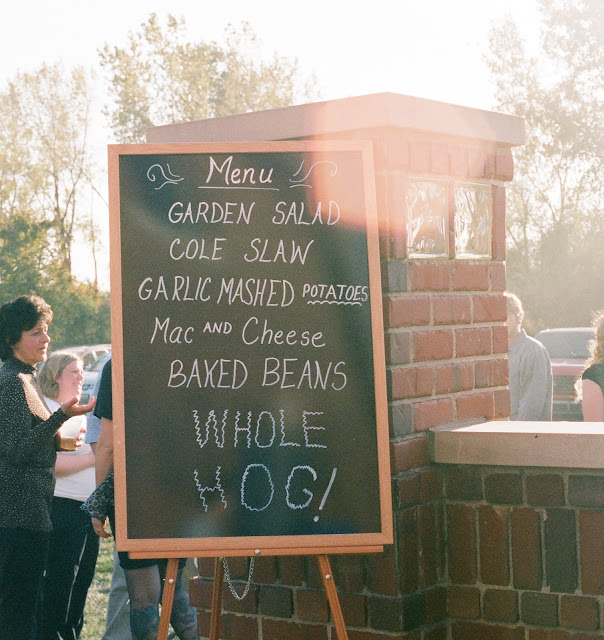 Menu
GARDEN SALAD
COLE SLAW
GARLIC MASHED POTATOES
Mac AND Cheese
BAKED BEANS
WHOLE
HOG!